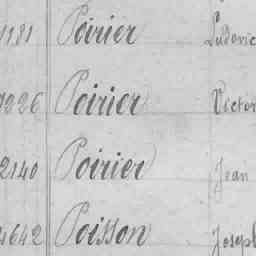 1181 Poirier Ludovic
1226 Poirier Victor
2140 Poirier Jean
4642 Poisson Joseph